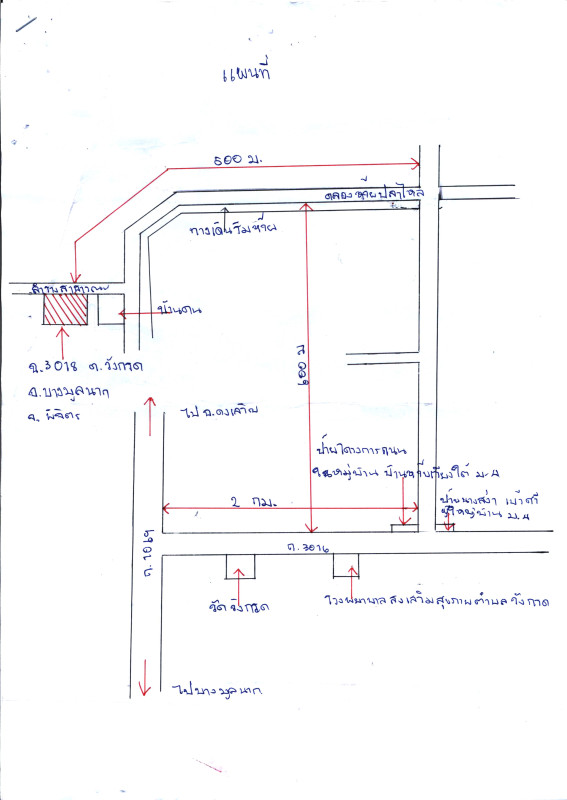 แผนที่
600 ม.
คลองห้วยปลาไหล
ทางเดินริมห้วย
ลำรางสาธารณะ
บ้านคน
ฉ.3018 ต.วังกวด
อ.บางมูลนาก
จ.พิจิตร
600 ม
ไป อ.ดงเจริญ
ป้ายโครงการถนน
ในหมู่บ้าน
ใต้ ม.4
ป้าย
ผู้ใหญ่บ้าน ม.4
2 กม.
ถ. 1069
ถ. 3016
วัดวังกวด
โรงพยาบาลส่งเสริมสุขภาพตำบลวังกวด
ไปบางมูลนาก